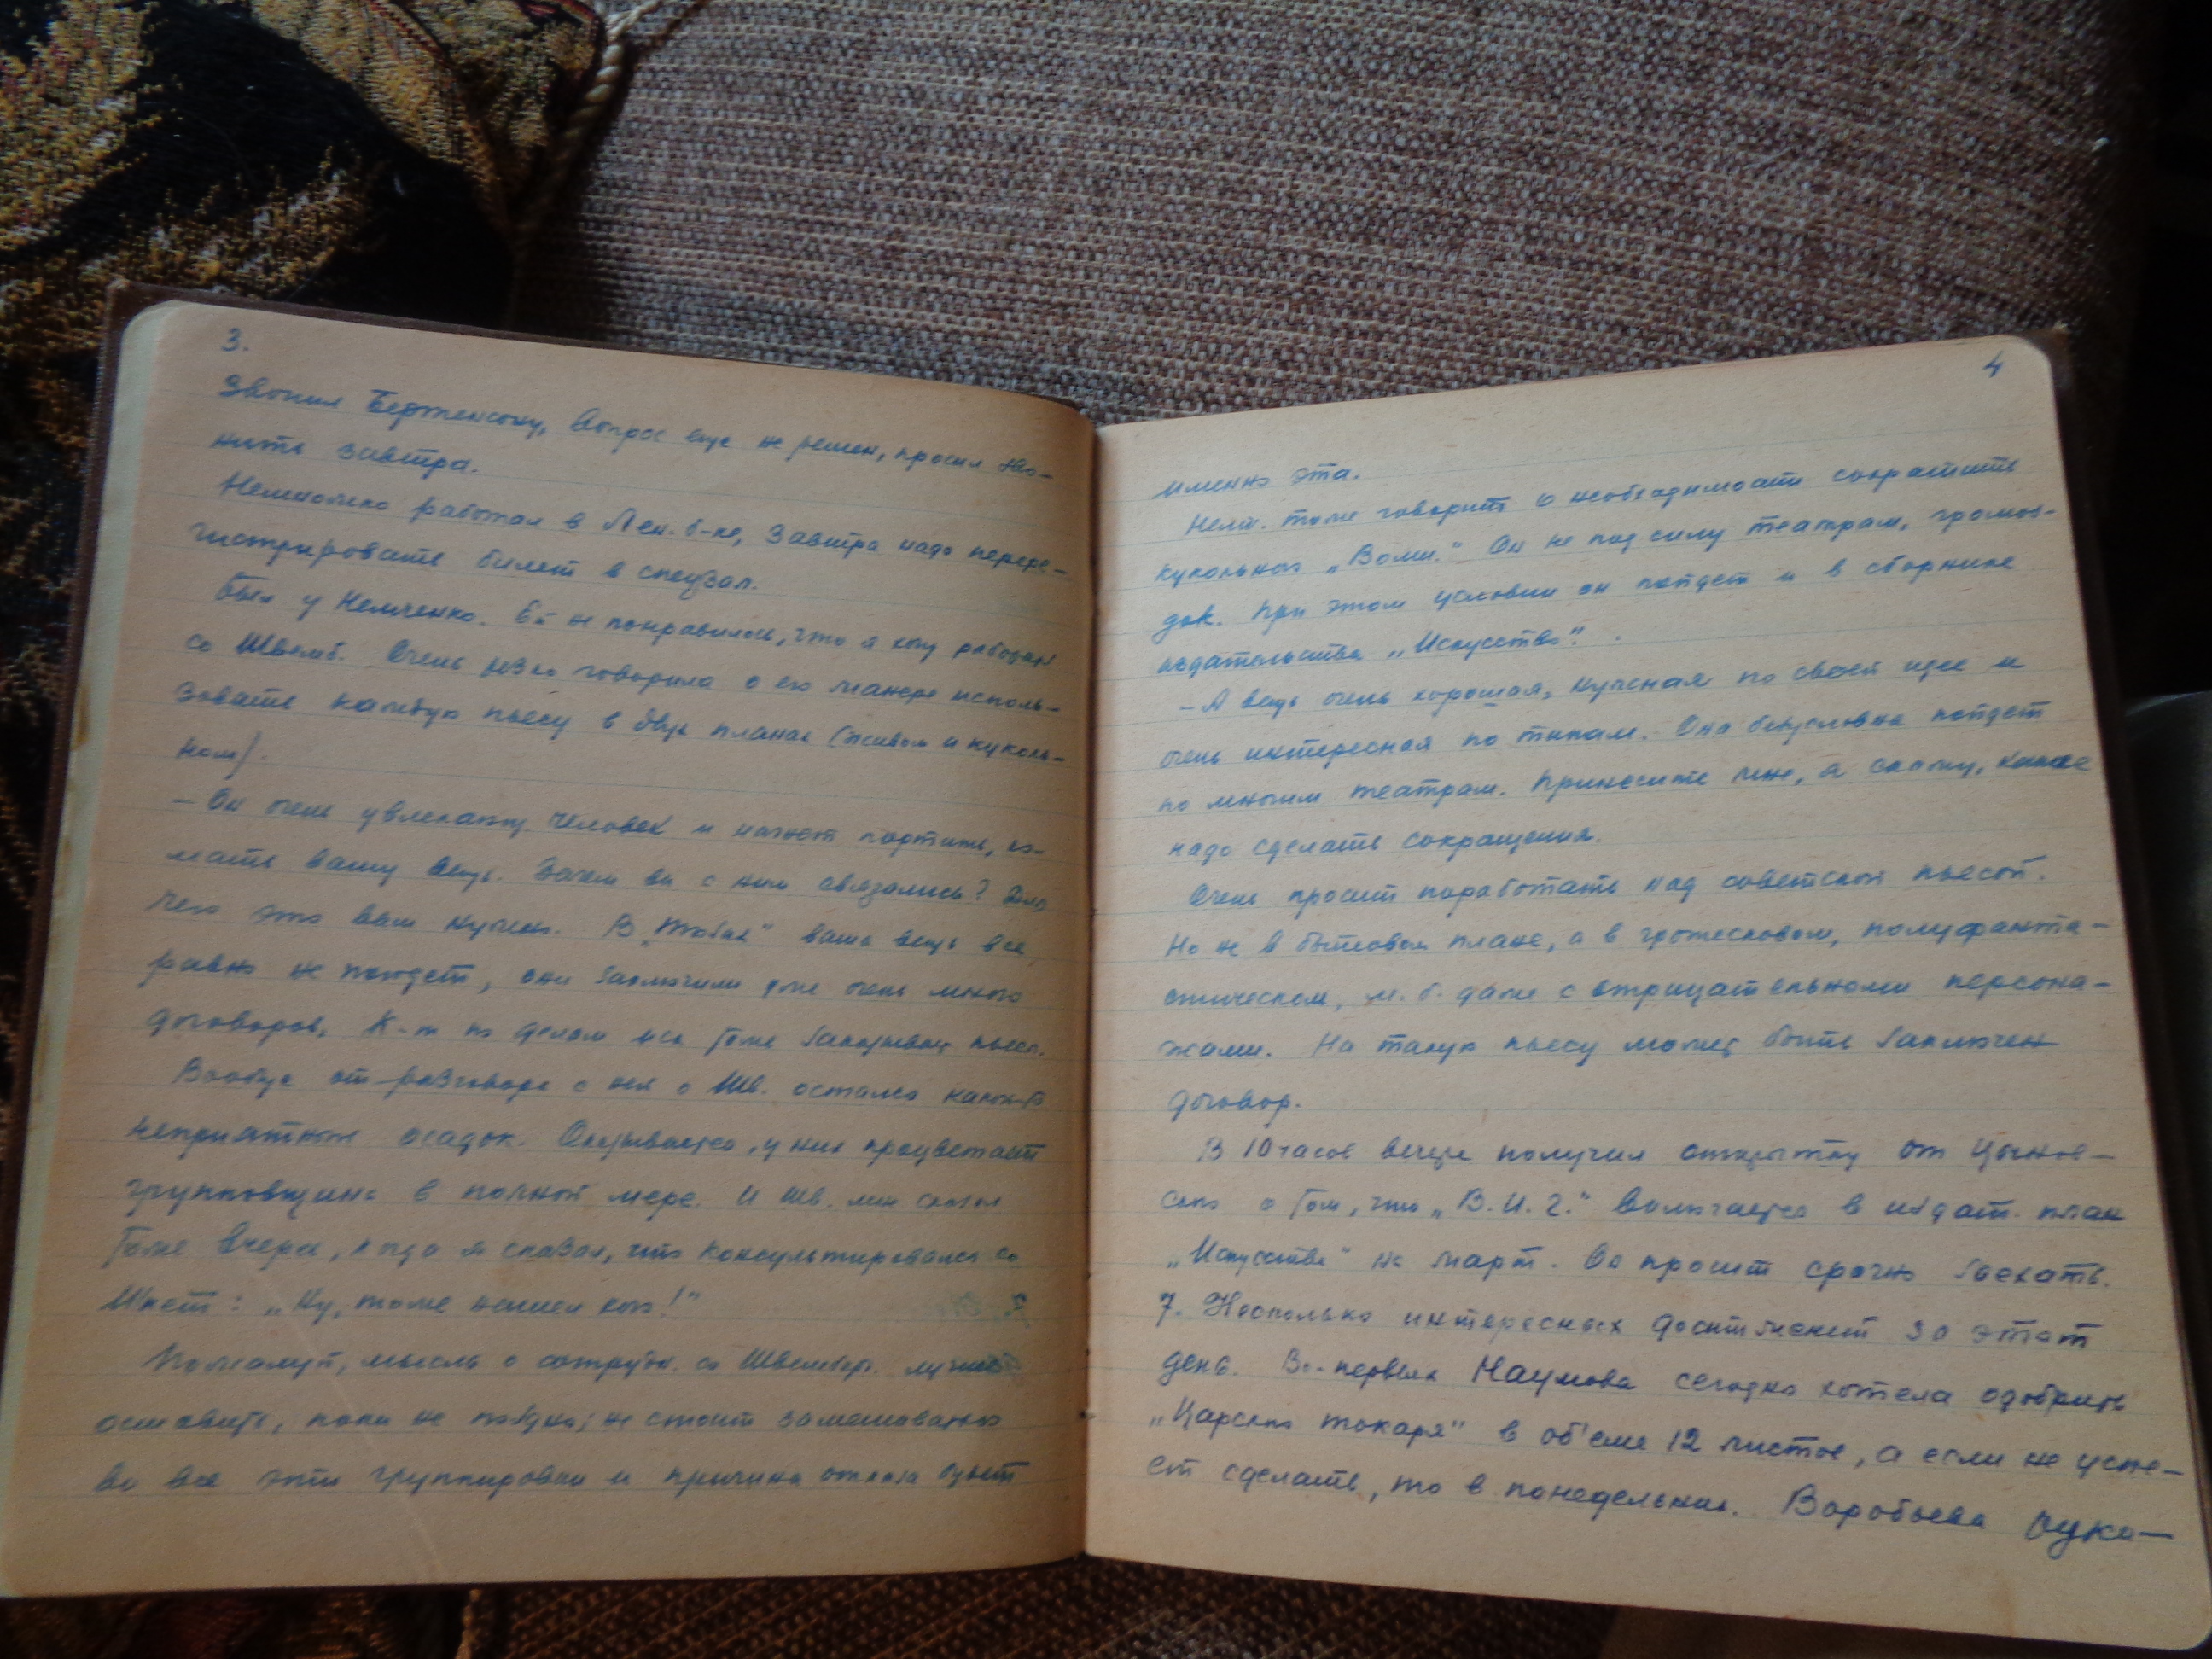 3.
Звонил Бертенсону, вопрос еще не решен, просил зво-
нить завтра.
Немножко работал в Лен. б-ке, завтра надо перере-
гистрировать билет в спецзал.
Был у Немченко. Ей не понравилось, что я хочу работать
со Швемб. Очень резко говорила о его манере исполь-
зовать каждую пьесу в двух планах (живом и куколь-
ном).
– Он очень увлекающ. человек и начнет портить, ло-
мать вашу вещь. Зачем вы с ним связались? Для
чего это вам нужно. В ваша вещь все
равно не пойдет, они заключили уже очень много
договоров, К-т по делам иск тоже заказывает пьесы.
Вообще от разговора с ней о Шв. остался какой-то
неприятный осадок. Оказывается, у них процветает
групповщина в полной мере. И Шв. мне сказал
тоже вчера, когда я сказал, что консультировался со
Шпет: „Ну, тоже нашел кого!"
Пожалуй, мысль о сотруд. со Швембер. лучше
оставить, пока не поздно; не стоит замешиваться
во все эти группировки и причина отказа будет
4
именно эта.
Немч. тоже говорит о необходимости сократить
кукольного „Волш." Он не под силу театрам, громоз-
док. При этом условии он пойдет и в сборнике
издательства „Искусство".
– А вещь очень хорошая, нужная по своей идее и
очень интересная по типам. Она безусловно пойдет
по многим театрам. Приносите мне, я скажу, какие
надо сделать сокращения.
Очень просит поработать над советской пьесой.
Но не в бытовом плане, а в гротесковом, полуфанта-
стическом, м. б. даже с отрицательными персона-
жами. На такую пьесу может быть заключен
договор.
В 10 часов вечера получил открытку от Цынов-
ского о том, что „В.И.Г." включается в издат. план
„Искусства" на март. Он просит срочно заехать.
7. Несколько интересных достижений за этот
день. Во-первых Наумова сегодня хотела одобрить
„Царского токаря" в об'еме 12 листов, а если не успе-
ет сделать, то в понедельник. Воробьева